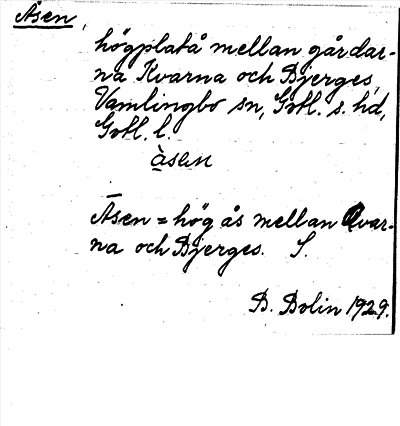 Åsen,
högplatå mellan gårdar-
na Kvarna och Bjerges,
Vamlingbo sn, Gotl. s. hd,
Gotl. l.
åsen
Åsen = hög ås mellan Qvar-
na och Bjerges. S.
B. Bolin 1929.